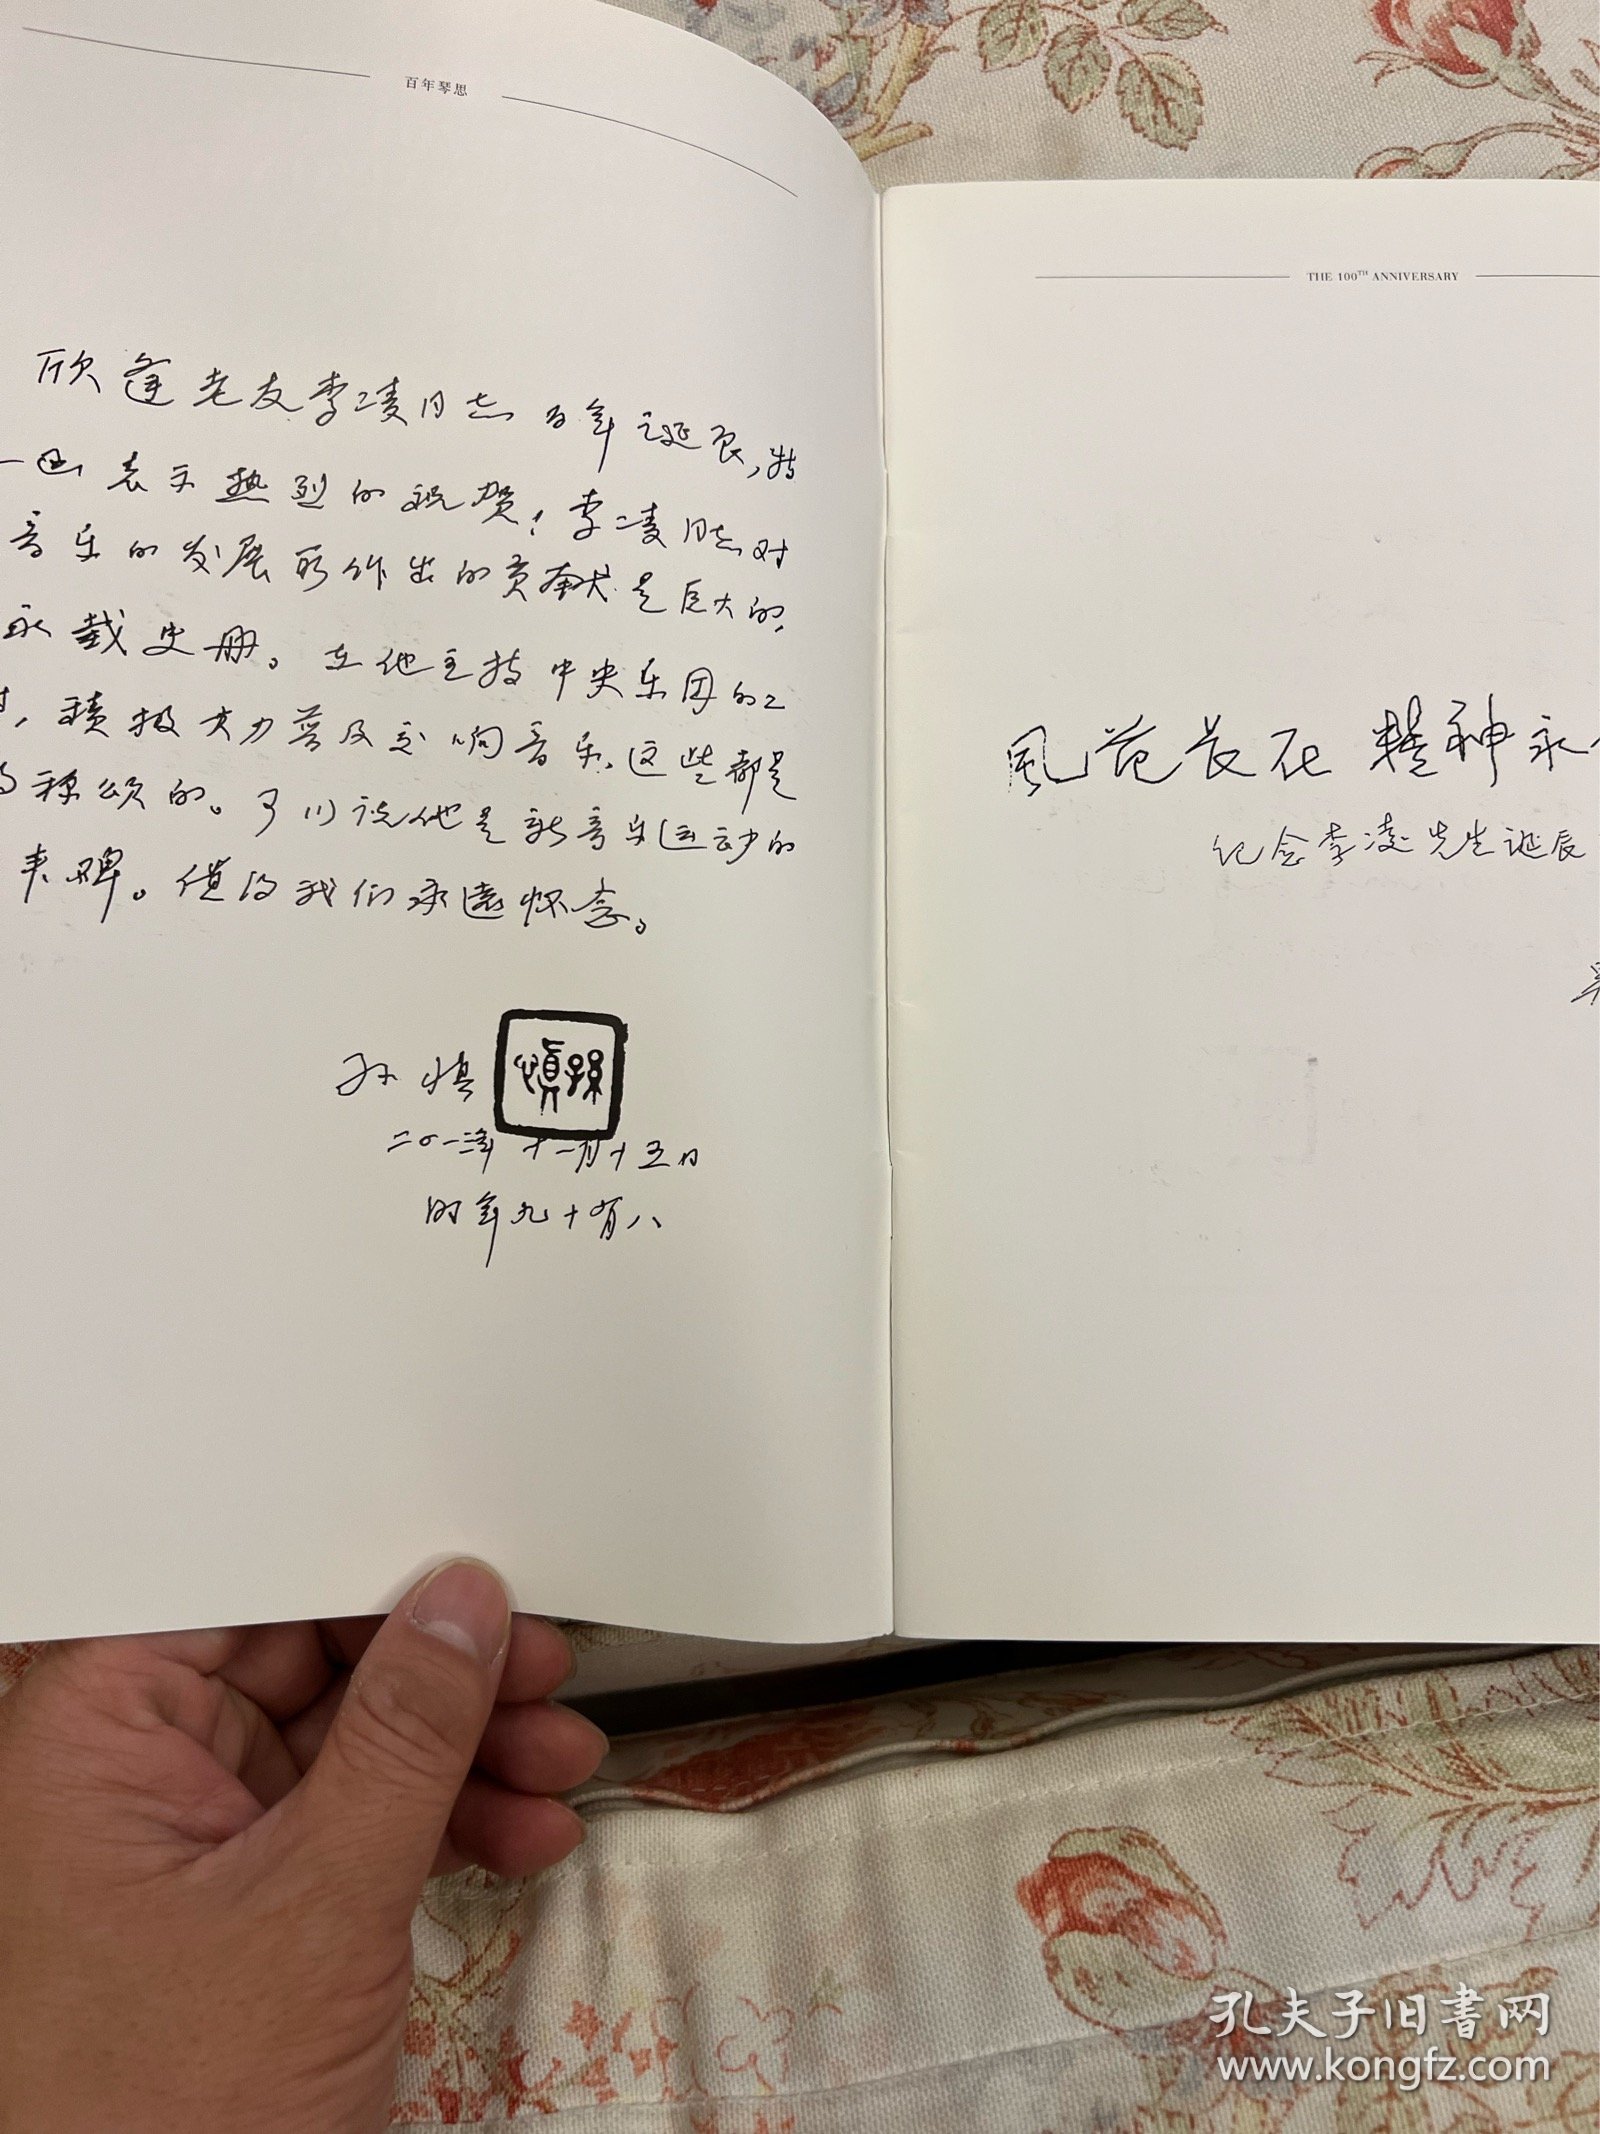 百年琴思
欣逢老友李凌同志百年诞辰，特
表示热烈的祝贺！李凌同志对
音乐的发展所作出的贡献是巨大的，
永载史册。在他主持中央乐团的工
积极大力普及交响音乐，这些都是
称颂的。可以说他是新音乐运动的
碑。值得我们永远怀念。
孙慎
慎孫
二〇一三年十一月十五日
时年九十有八
THE 100TH ANNIVERSARY
風范长在 精神永
纪念李凌先生诞辰
孔夫子旧書网
www.kongfz.com